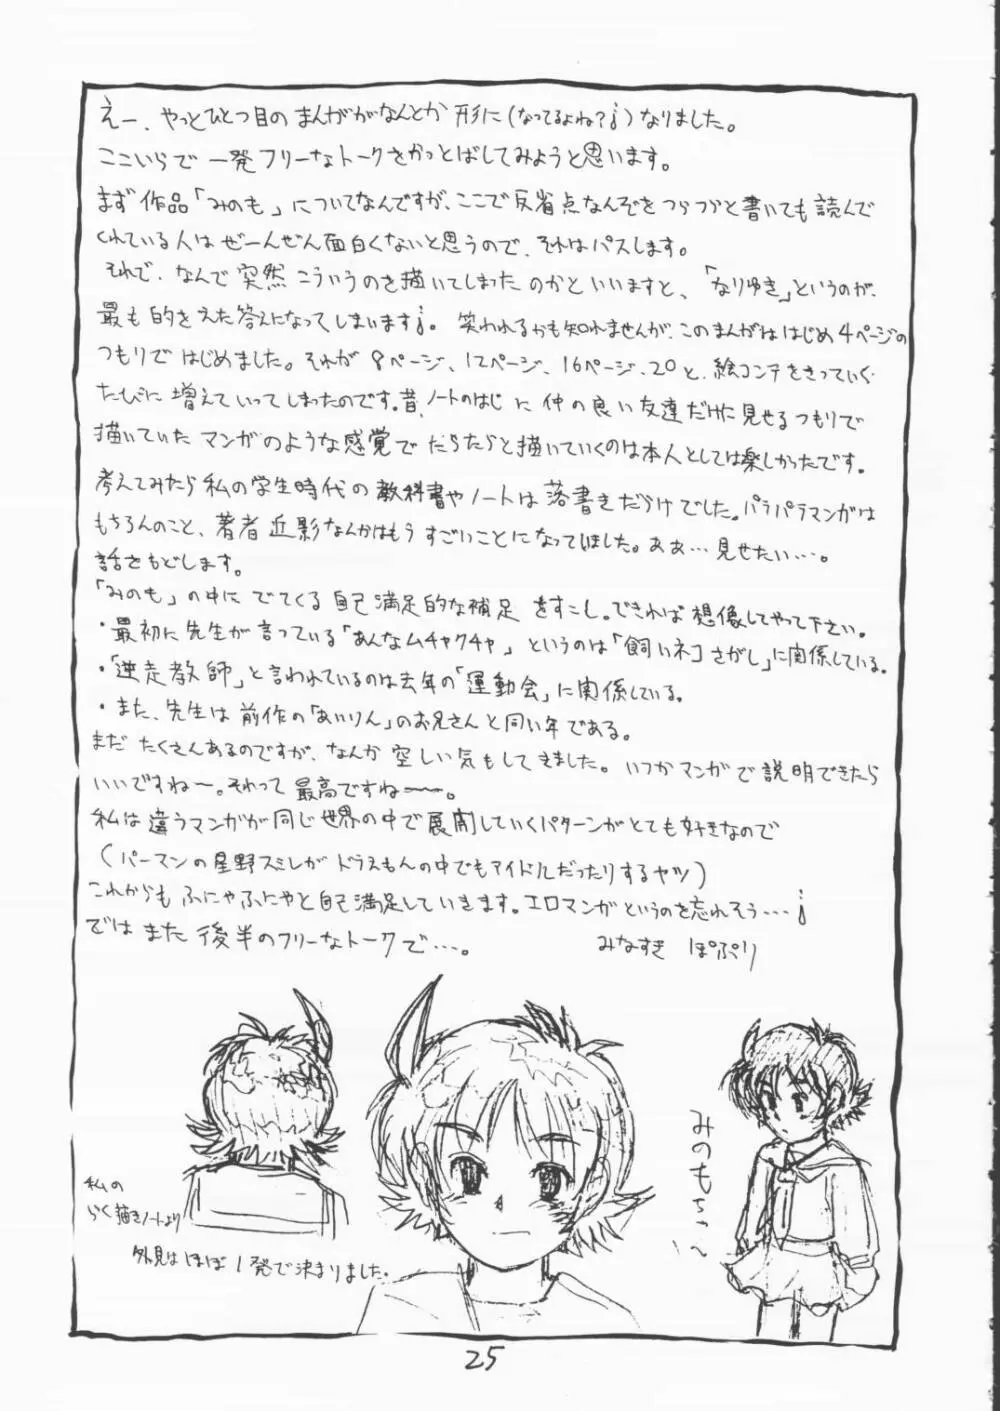 えー、やっとひとつ目のまんががなんとか形に(なってるよね?)なりました。
ここいらで一発フリーなトークをかっとばしてみようと思います。
まず作品「みのも」についてなんですが、ここで反省点なんぞをつらつらと書いても読んで
くれている人はぜーんぜん面白くないと思うので、それはパスします。
それで、なんで突然こういうのを描いてしまったのかといいますと、「なりゆき」というのが、
最も的をえた答えになってしまいます。笑われるかも知れませんが、このまんがははじめ4ページの
つもりではじめました。それが8ページ、12ページ、16ページ、20と、絵コンテをきっていく
たびに増えていってしまったのです。昔、ノートのはじに仲の良い友達だけに見せるつもりで
描いていたマンガのような感覚でだらだらと描いていくのは本人としては楽しかったです。
考えてみたら私の学生時代の教科書やノートは落書きだらけでした。パラパラマンガは
もちろんのこと、著者近影なんかはもうすごいことになってしました。ああ…見せたい…。
話をもどします。
「みのも」の中にでてくる自己満足的な補足をすこし。できれば想像してやって下さい。
・最初に先生が言っている「あんなムチャクチャ」というのは「飼いネコさがし」に関係している。
・「逆走教師」と言われているのは去年の「運動会」に関係している。
・また、先生は前作の「あいりん」のお兄さんと同い年である。
まだたくさんあるのですが、なんか空しい気もしてきました。いつかマンガで説明できたら
いいですねー。それって最高ですねー。
私は違うマンガが同じ世界の中で展開していくパターンがとても好きなので
(パーマンの星野スミレがドラえもんの中でもアイドルだったりするヤツ)
これからもふにゃふにゃと自己満足していきます。エロマンガというのを忘れそう…
ではまた後半のフリーなトークで…。 みなすき ぽぷり
みのもちゃ〜ん
私の
らく描きノートより
外見はほぼ1発で決まりました。
25